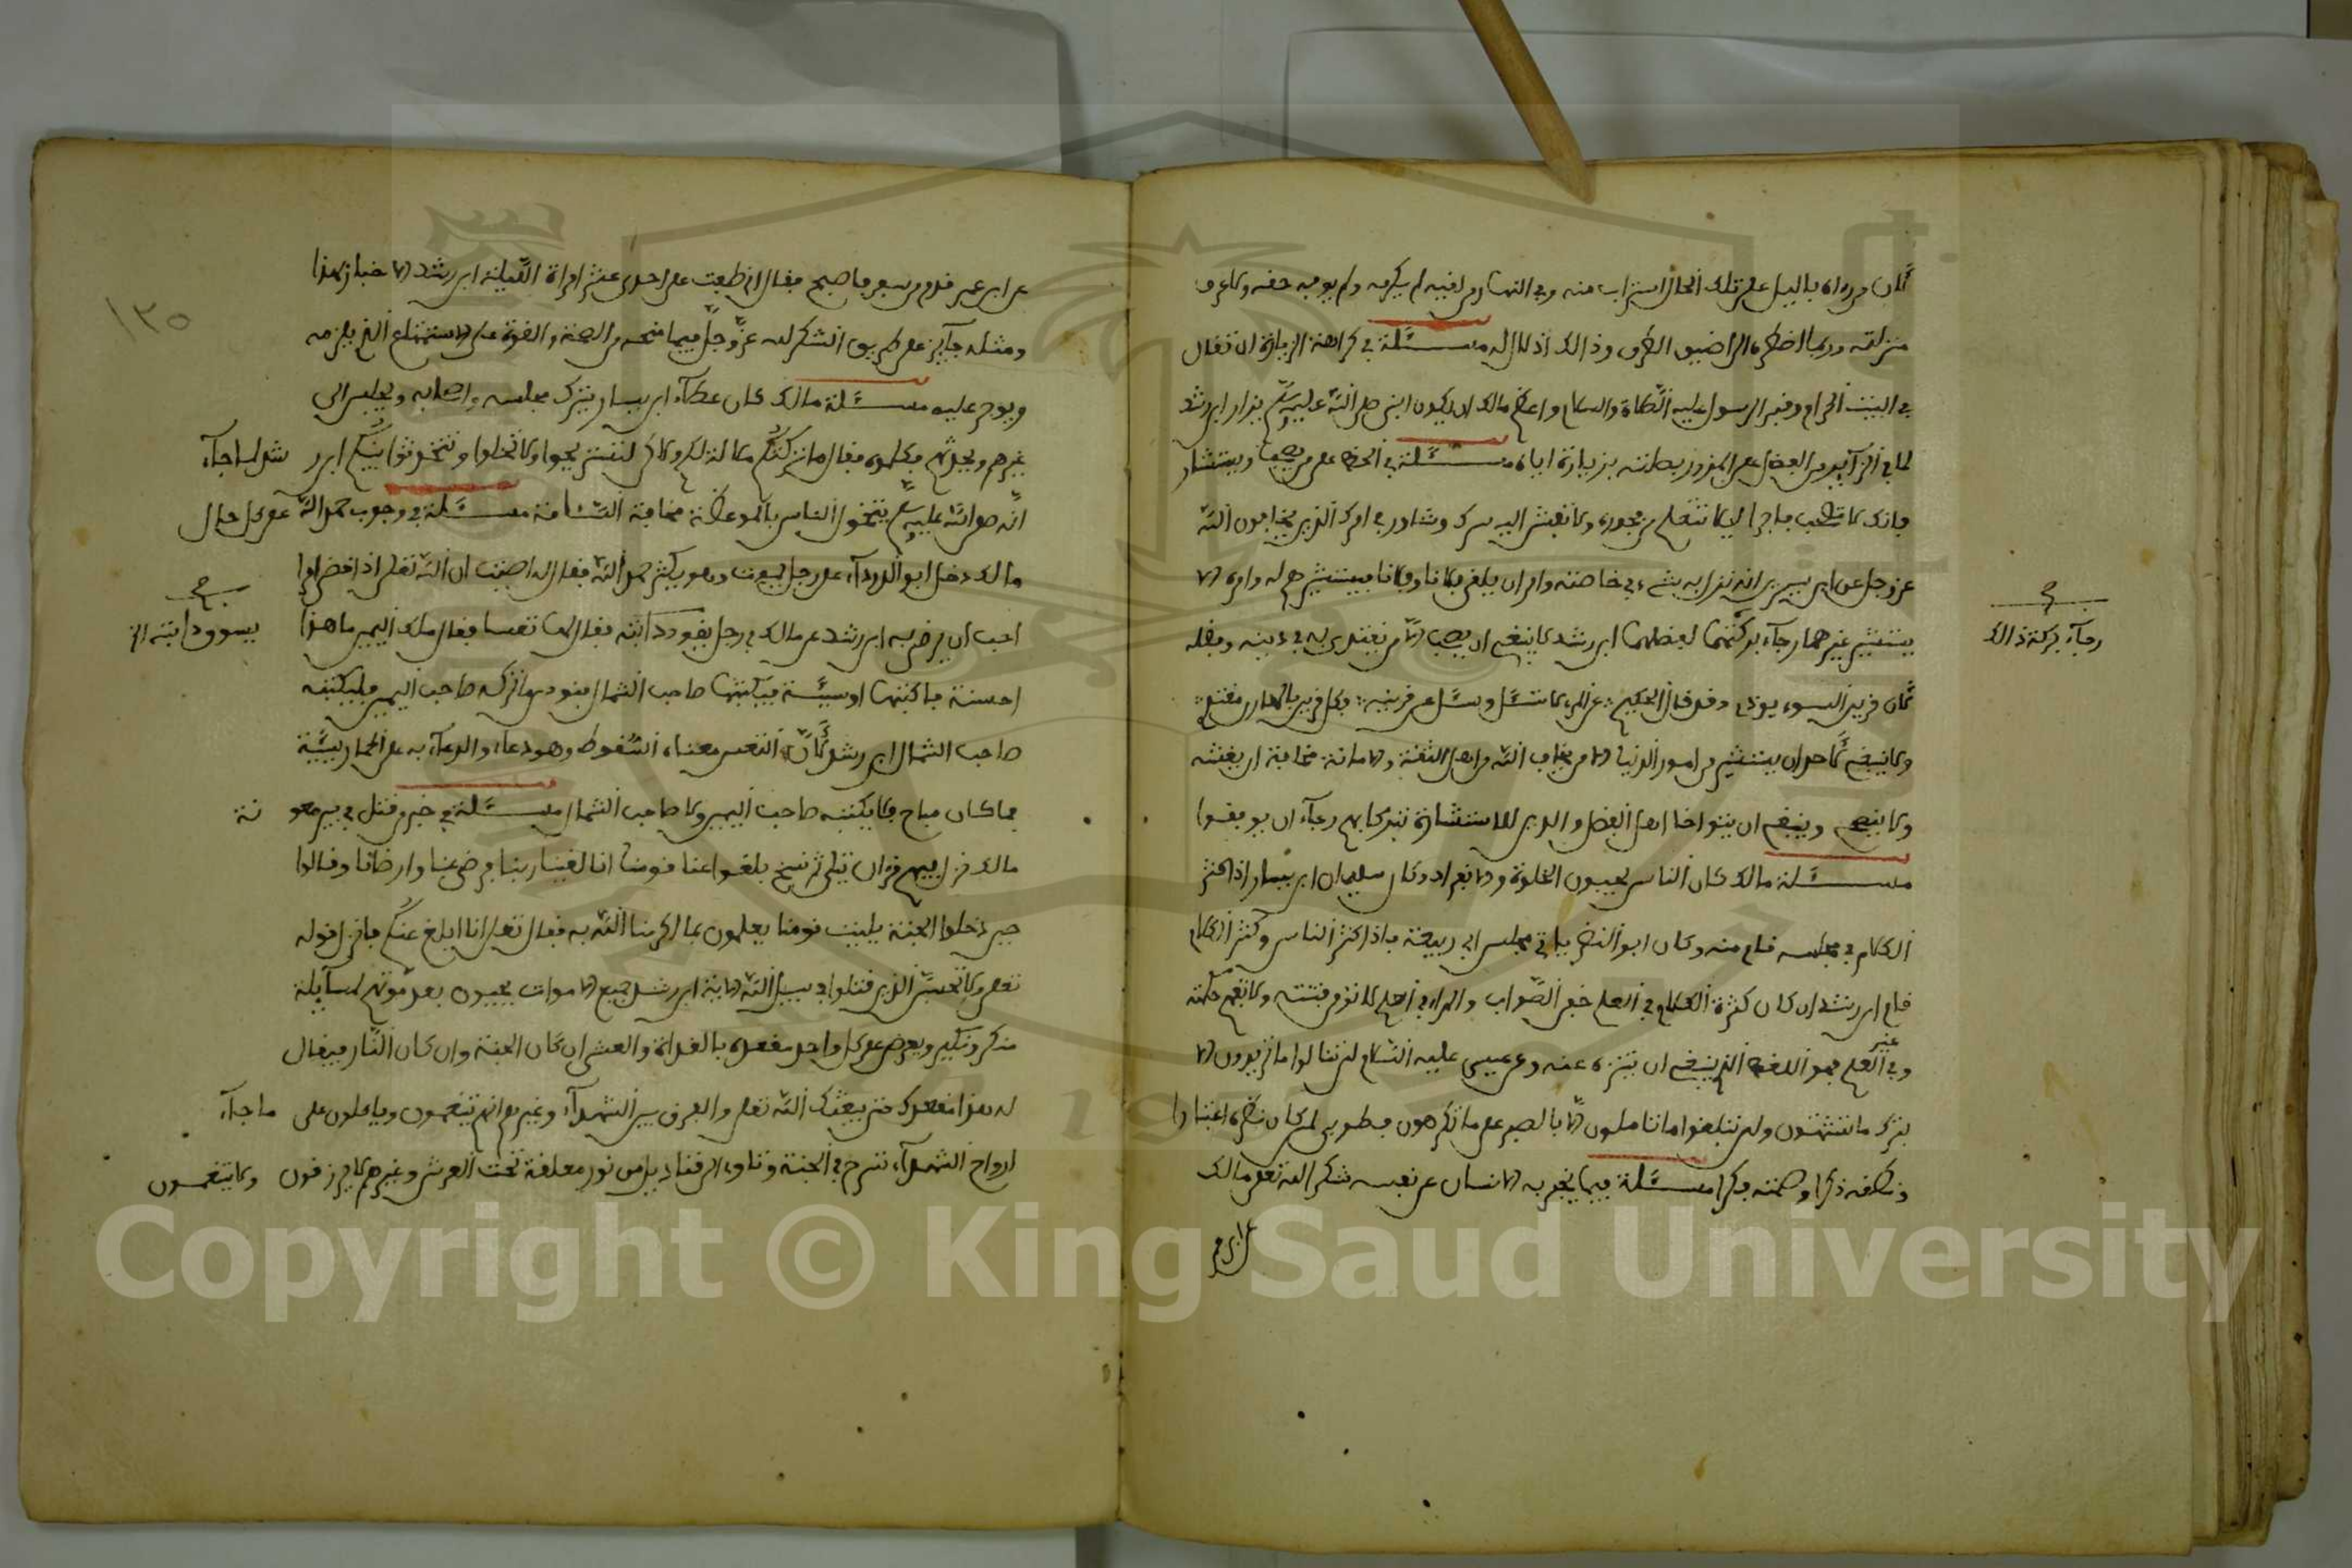 لان من رءاه بالليل على تلك الحال استراب منه وفي النهار من لقيه لم يكرمه ولم يوفيه حقه ولا عرف
منزلته وربما اضطره الى اضيق الطرق وذالك اذلال له مسئلة في كراهة الزيارة ان تقال
في البيت الحرام وقبر الرسول عليه الصلاة والسلام واعظم مالك ان يكون النبي صلى الله عليه وسلم يزار ابن رشد
لما في الزائر من الفضل على المزور بصلته بزيارة اياه مسئلة في الحض على من يصحب ويستشار
مالك لا تصحب فاجرا لئلا تتعلم من فجوره ولا تفش اليه سرك وشاور في امرك الذين يخافون الله
عز وجل عن ابن سيرين انه نزل به شيء في خاصته وامر ان يلقى فلانا وفلانا فيستشيرهم له وامره الا
يستشير غيرهما رجاء بركتهما لفضلهما ابن رشد لا ينبغي ان يصحب الا من يقتدى به في دينه وفضله
لان قرين السوء يؤذي وقد قال الحكيم : عن المرء لا تسئل وسئل عن قرينه : فكل قرين بالمقارن مقتد :
ولا ينبغي لاحد ان يستشير في امور الدنيا الا من يخاف الله من اهل الثقة والامانة مخافة ان يغشه
ولا ينصح وينبغي ان يتواخا اهل الفضل والدين للاستشارة تبركا بهم رجاء ان يوفقوا
مسئلة مالك كان الناس يحبون الخلوة والانفراد وكان سليمان ابن يسار اذا كثر
الكلام في مجلسه قام منه وكان ابو النضر ياتي مجلس ابي ربيعة فاذا كثر الناس وكثر الكلام
قام ابن رشد ان كان كثرة الكلام في العلم خفي الصواب والمراء في العلم لا تؤمن فتنته ولا تفهم حكمته
وفي غير العلم فهو اللغط الذي ينبغي ان يتنزه عنه وعن عيسى عليه السلام لن تنالوا ما تريدون الا
بترك ما تشتهون ولن تبلغوا ما تاملون الا بالصبر على ما تكرهون فطوبى لمن كان نظره اعتبارا
ونطقه ذكرا وصمته فكرا مسئلة فيما يخبر به الانسان عن نفسه شكرا لله تعلى مالك
رجاء بركة ذالك
عن ابن عمر قدم من سفر فاصبح فقال اني طفت على احدى عشر امراة الليلة ابن رشد الاخبار بهذا
ومثله جايز على طريق الشكر لله عز وجل فيما منحه من الصحة والقوة على الاستمتاع الذي يلزمه
ويوجر عليه مسئلة مالك كان عطاء ابن يسار يترك مجلسه واصحابه ويجلس الى
غيرهم ويحدثهم فكلموه فقال ما تركتكم ملالة لكم ولاكن لتستريحوا ولا تملوا وتتحدثوا بينكم ابن رشد لما جاء
انه صلى الله عليه وسلم يتخول الناس بالموعظة مخافة السئامة مسئلة في وجوب حمد الله على كل حال
مالك دخل ابو الدرداء على رجل يموت وهو يكثر حمد الله فقال له اصبت ان الله تعلى اذا قضى امرا
احب ان يرضى به ابن رشد عن مالك في رجل يقود دابته فقال لها تعسا فقال ملك اليمين ما هذا
يسوق دابته الخ
احسنة فاكتبها او سيئة فيكتبها صاحب الشمال فنودي ما تركه صاحب اليمين فليكتبه
صاحب الشمال ابن رشد لان التعس معناه السقوط وهو دعاء والدعاء به على الحمار سيئة
فما كان مباح فلا يكتبه صاحب اليمين ولا صاحب الشمال مسئلة في خبر من قتل في بير معونة
مالك نزل فيهم قران يتلى ثم نسخ بلغوا عنا قومنا انا لقينا ربنا فرضي عنا وارضانا وقالوا
حين دخلوا الجنة ياليت قومنا يعلمون بما اكرمنا الله به فقال تعلى انا ابلغ عنكم فانزل قوله
تعلى ولا تحسبن الذين قتلوا في سبيل الله الاية ابن رشد جميع الاموات يحيون بعد موتهم لمسايلة
منكر ونكير ويعرض على كل واحد مقعده بالغداة والعشي ان كان الجنة وان كان النار فيقال
له هذا مقعدك حتى يبعثك الله تعلى والفرق بين الشهداء وغيرهم انهم يتنعمون وياكلون على ما جاء
ارواح الشهداء تسرح في الجنة وتاوي الى قناديل من نور معلقة تحت العرش وغيرهم لا يرزقون ولا يتنعمون
١٣٥
Copyright © King Saud University